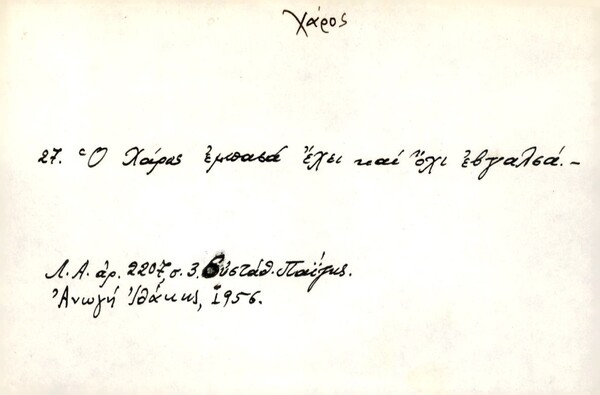 Χάρος
27. Ὁ Χάρος ἐμπασιά ἔχει καί ὄχι ἐβγαλσιά.-
Λ.Α. ἀρ. 2207, σ. 3, Εὐστάθ. Παΐζης.
Ἀνωγή Ἰθάκης, 1956.